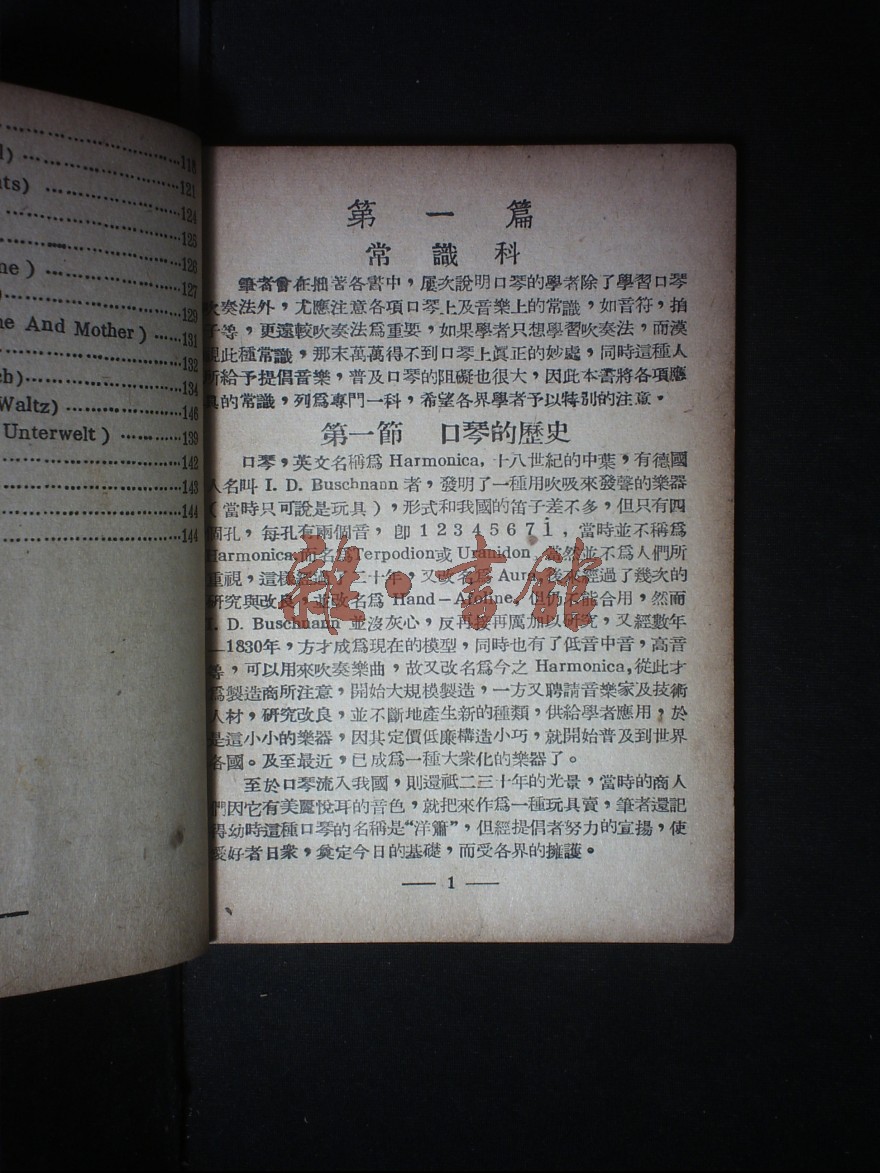 118
121
ts) 124
125
ne ) 126
127
129
ne And Mother ) 131
132
ch) 134
Waltz) 146
Unterwelt ) 139
142
143
144
144
第一篇
常識科
筆者曾在拙著各書中，屢次說明口琴的學者除了學習口琴
吹奏法外，尤應注意各項口琴上及音樂上的常識，如音符，拍
子等，更遠較吹奏法爲重要，如果學者只想學習吹奏法，而漠
視此種常識，那末萬萬得不到口琴上眞正的妙處，同時這種人
所給予提倡音樂，普及口琴的阻礙也很大，因此本書將各項應
具的常識，列爲專門一科，希望各界學者予以特別的注意。
第一節 口琴的歷史
口琴，英文名稱爲 Harmonica, 十八世紀的中葉，有德國
人名叫 I. D. Buschnann 者，發明了一種用吹吸來發聲的樂器
（當時只可說是玩具），形式和我國的笛子差不多，但只有四
個孔，每孔有兩個音，卽 1 2 3 4 5 6 7 i̇ , 當時並不稱爲
Harmonica,而名爲Terpodion或 Uranidon 當然並不爲人們所
重視，這樣經過了二十年，又改名爲 Aura, 後來經過了幾次的
研究與改良，並改名爲 Hand－Aeoline, 但仍不能合用，然而
I. D. Buschnann 並沒灰心，反再接再厲加以研究，又經數年
—1830年，方才成爲現在的模型，同時也有了低音中音，高音
等，可以用來吹奏樂曲，故又改名爲今之 Harmonica,從此才
爲製造商所注意，開始大規模製造，一方又聘請音樂家及技術
人材，研究改良，並不斷地產生新的種類，供給學者應用，於
是這小小的樂器，因其定價低廉構造小巧，就開始普及到世界
各國。及至最近，已成爲一種大衆化的樂器了。
至於口琴流入我國，則還祇二三十年的光景，當時的商人
們因它有美麗悅耳的音色，就把來作爲一種玩具賣，筆者還記
得幼時這種口琴的名稱是“洋簫”，但經提倡者努力的宣揚，使
愛好者日衆，奠定今日的基礎，而受各界的擁護。
— 1 —
雜·書館